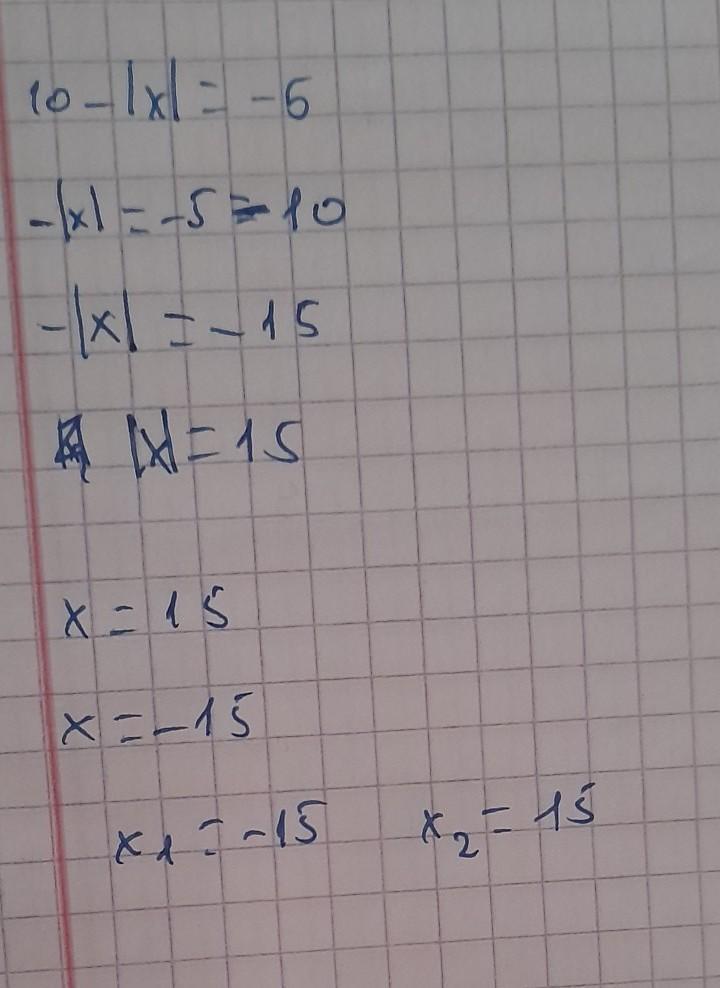 10-|x| = -5
-|x| = -5 - 10
-|x| = -15
|x| = 15
x = 15
x = -15
x₁ = -15 x₂ = 15